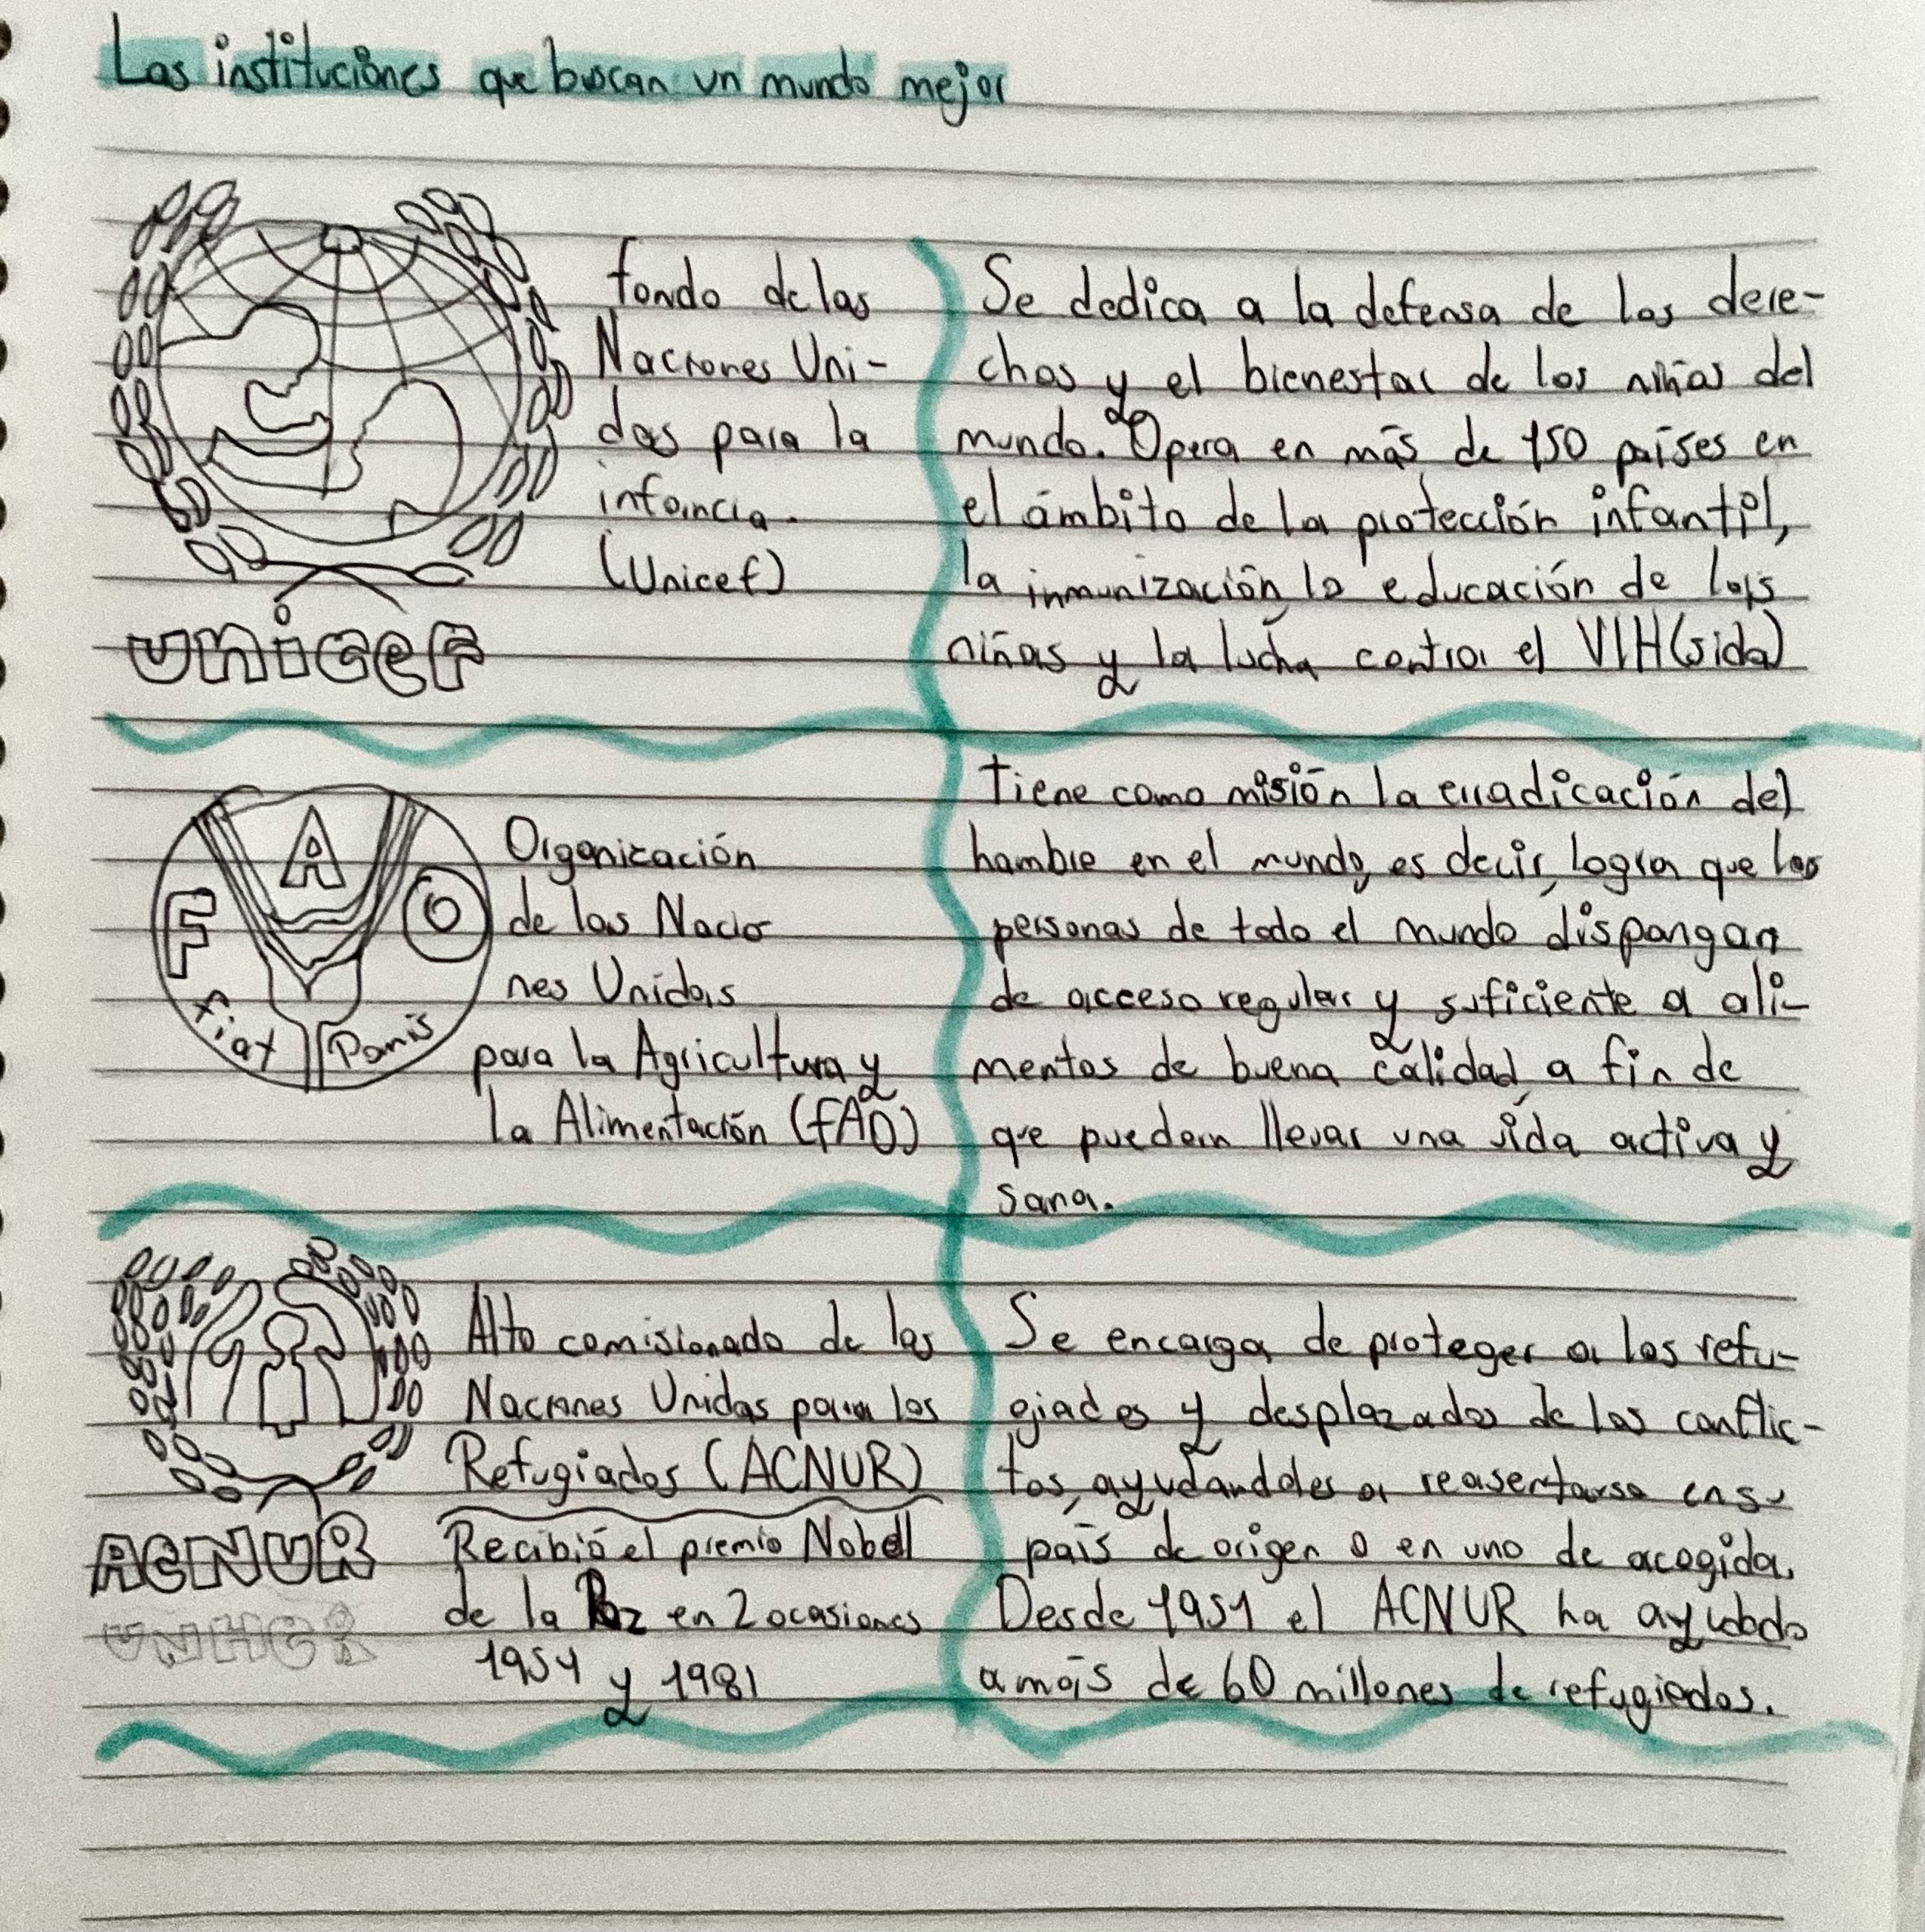 Las instituciones que buscan un mundo mejor
fondo de las
Naciones Uni-
das para la
infancia.
(Unicef)
unicef
Se dedica a la defensa de los dere-
chos y el bienestar de los niños del
mundo. Opera en más de 150 países en
el ámbito de la protección infantil,
la inmunización, la educación de las
niñas y la lucha contra el VIH(sida)
F A O
fiat Panis
Organización
de las Nacio
nes Unidas
para la Agricultura y
la Alimentación (fAO)
tiene como misión la erradicación del
hambre en el mundo, es decir, lograr que las
personas de todo el mundo dispongan
de acceso regular y suficiente a ali-
mentos de buena calidad, a fin de
que puedan llevar una vida activa y
sana.
ACNUR
UNHCR
Alto comisionado de las
Naciones Unidas para los
Refugiados (ACNUR)
Recibió el premio Nobell
de la Paz en 2 ocasiones
1954 y 1981
Se encarga de proteger a los refu-
giados y desplazados de los conflic-
tos, ayudandoles a reasentarse en su
país de origen o en uno de acogida.
Desde 1951 el ACNUR ha ayudado
a más de 60 millones de refugiados.